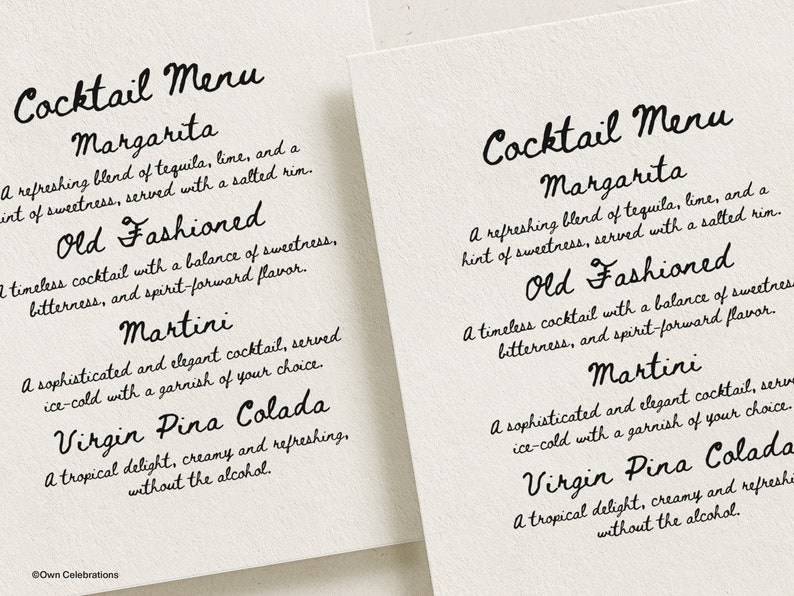 Cocktail Menu
Margarita
A refreshing blend of tequila, lime, and a
hint of sweetness, served with a salted rim.
Old Fashioned
A timeless cocktail with a balance of sweetness,
bitterness, and spirit-forward flavor.
Martini
A sophisticated and elegant cocktail, served
ice-cold with a garnish of your choice.
Virgin Pina Colada
A tropical delight, creamy and refreshing,
without the alcohol.
Cocktail Menu
Margarita
A refreshing blend of tequila, lime, and a
hint of sweetness, served with a salted rim.
Old Fashioned
A timeless cocktail with a balance of sweetness
bitterness, and spirit-forward flavor.
Martini
A sophisticated and elegant cocktail, serve
ice-cold with a garnish of your choice.
Virgin Pina Colada
A tropical delight, creamy and refreshin
without the alcohol.
©Own Celebrations